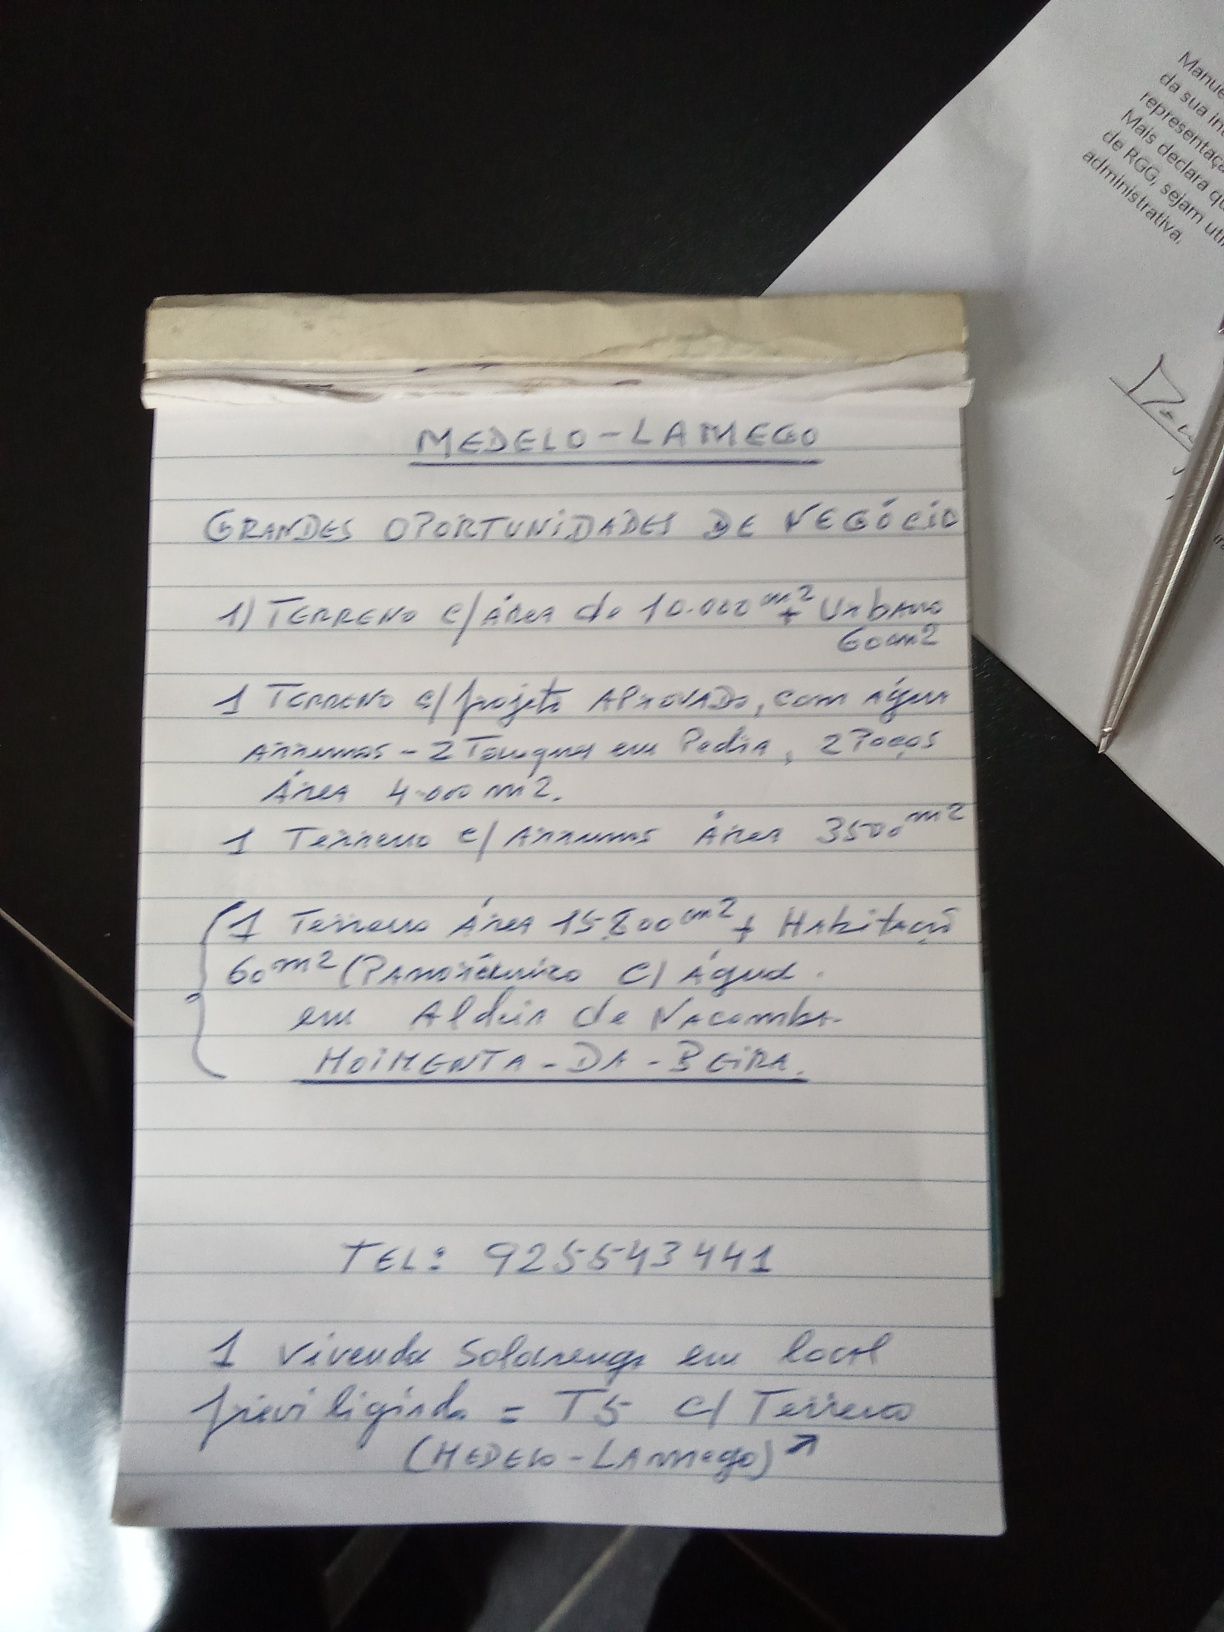 MEDELO-LAMEGO
GRANDES OPORTUNIDADES DE NEGÓCIO
1) TERRENO C/ ÁREA de 10.000 m2 + Urbano
60 m2
1 TERRENO C/ projeto APROVADO, com água
ARRUMOS - 2 Tanques em Pedra, 2 Poços
ÁREA 4.000 m2.
1 Terreno C/ ARRUMOS ÁREA 3500 m2
1 Terreno ÁREA 15.800 m2 + Habitação
60 m2 (PANORÂMICO C/ água.
em Aldeia de NACOMBA.
MOIMENTA-DA-BEIRA.
TEL: 925543441
1 Vivenda Solarenga em local
previligiado = T5 C/ Terreno
(MEDELO-LAMEGO) ↗
Manue
da sua in
representaçã
Mais declara qu
de RGG, sejam uti
administrativa.